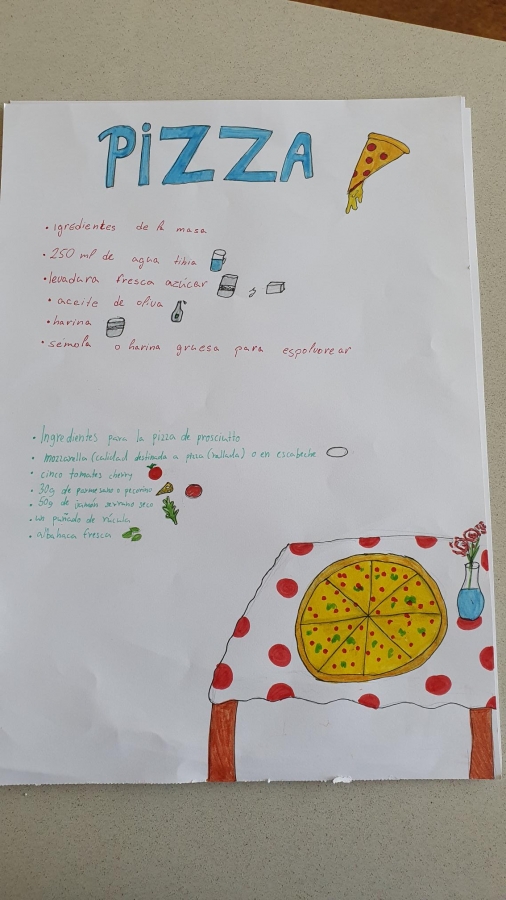 PiZZA
• igrédientes de la masa
• 250 ml de agua tibia
• levadura fresca azúcar y
• aceite de oliva
• harina
• semola o harina gruesa para espolvorear
• Ingredientes para la pizza de prosciutto
• mozzarella (calidad destinada a pizza (rallada) o en escabeche
• cinco tomates cherry
• 30g de parmesano o pecorino
• 50g de jamón serrano seco
• un puñado de rúcula
• albahaca fresca